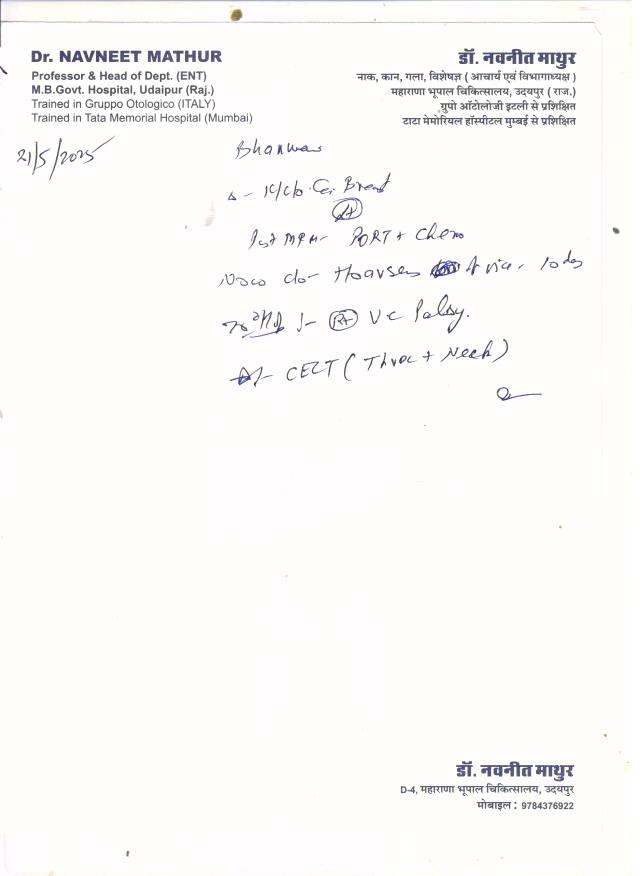 Dr. NAVNEET MATHUR
Professor & Head of Dept. (ENT)
M.B.Govt. Hospital, Udaipur (Raj.)
Trained in Gruppo Otologico (ITALY)
Trained in Tata Memorial Hospital (Mumbai)
डॉ. नवनीत माथुर
नाक, कान, गला, विशेषज्ञ ( आचार्य एवं विभागाध्यक्ष )
महाराणा भूपाल चिकित्सालय, उदयपुर ( राज.)
ग्रुपो ऑटोलोजी इटली से प्रशिक्षित
टाटा मेमोरियल हॉस्पीटल मुम्बई से प्रशिक्षित
21/5/2025
Bhanwar
K/c/o Ca. Breast
Post MRM - PORT + Chemo
Now c/o - Hoarseness of voice - 10 days
(Rt) VC Palsy.
CECT ( Thorax + Neck )
डॉ. नवनीत माथुर
D-4, महाराणा भूपाल चिकित्सालय, उदयपुर
मोबाइल : 9784376922